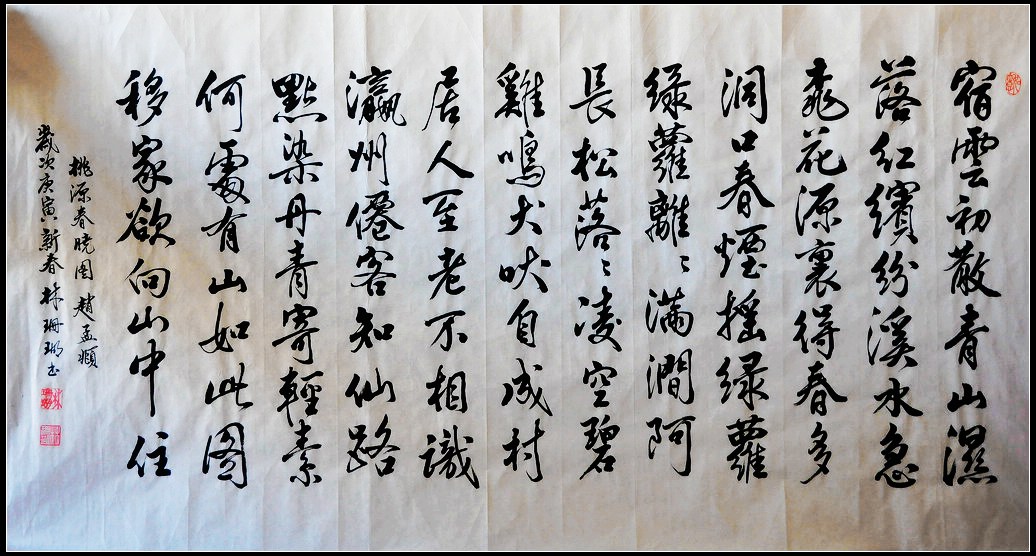 宿雲初散青山濕
落紅繽紛溪水急
桃花源裏得春多
洞口春煙搖绿蘿
绿蘿離〻滿澗阿
長松落〻凌空碧
雞鳴犬吠自成村
居人至老不相識
瀛州僊客知仙路
點染丹青寄輕素
何處有山如此图
移家欲向山中住
桃源春晓图 趙孟頫
歲次庚寅新春 林珊瑚书